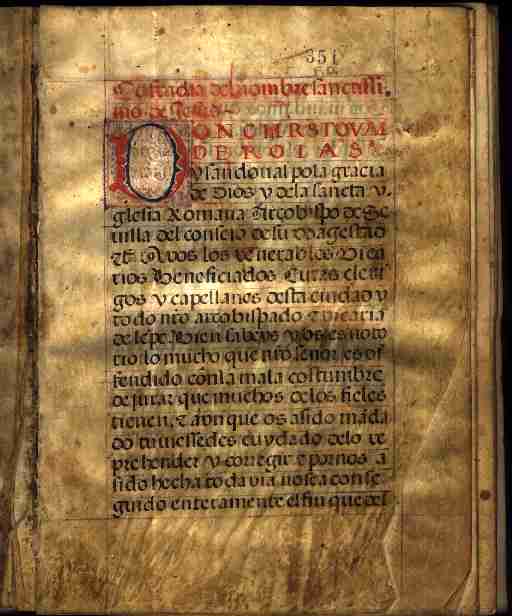 351
Cofradia del nombre sanctissi,
mo de Jesus
DON CHRSTOVAL
DE ROIAS
y sandoual por la gracia
de Dios y de la sancta y,
glesia Romana Arçobispo de Se
uilla del conseio de su Magestad
A vos los venerables Vica
rios Beneficiados Curas cleri
gos y capellanes desta ciudad y
todo nro arcobispado e vicaria
de lepe Bien sabeys y os es noto
rio lo mucho que nro señor es of
fendido con la mala costumbre
de jurar que muchos de los fieles
tienen, e aunque os a sido māda
do tuuiessedes cuydado de lo re
prehender y corregir e por nos a
sido hecha toda via no sea conse
guido enteramente el fin que des